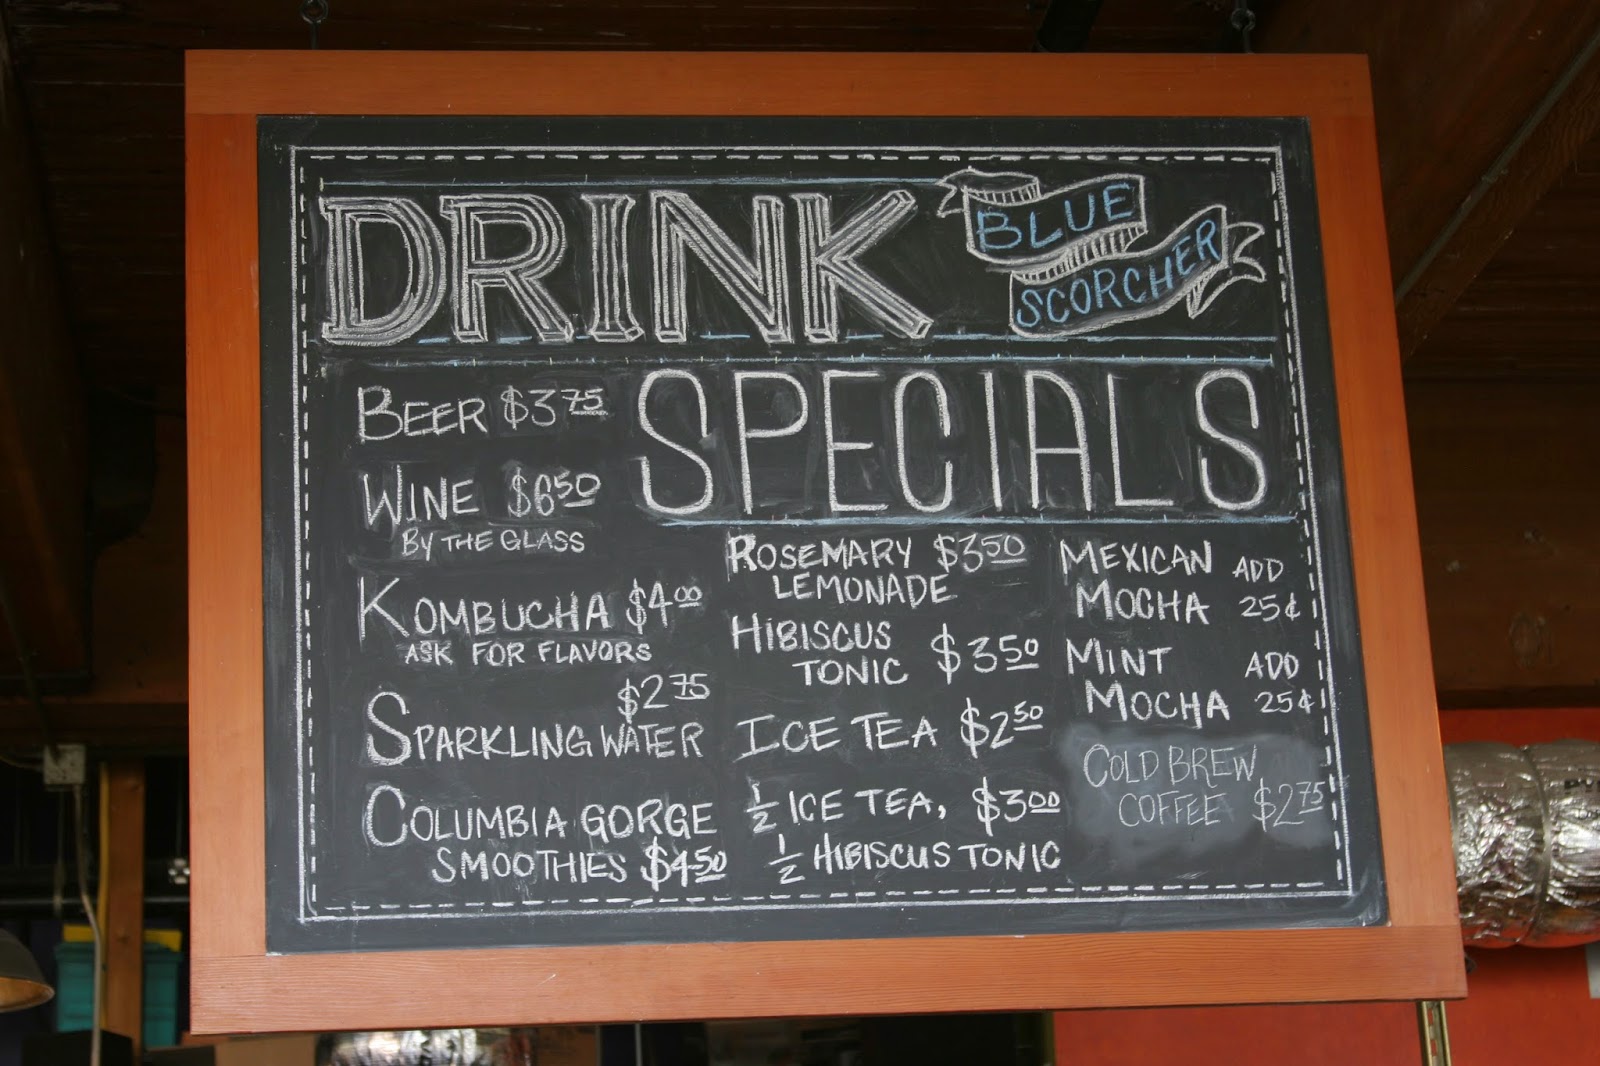 DRINK
BLUE
SCORCHER
SPECIALS
BEER $3.75
WINE $6.50
BY THE GLASS
KOMBUCHA $4.00
ASK FOR FLAVORS
$2.75
SPARKLING WATER
COLUMBIA GORGE
SMOOTHIES $4.50
ROSEMARY $3.50
LEMONADE
HIBISCUS
TONIC $3.50
ICE TEA $2.50
½ ICE TEA, $3.00
½ HIBISCUS TONIC
MEXICAN ADD
MOCHA 25¢
MINT ADD
MOCHA 25¢
COLD BREW
COFFEE $2.75